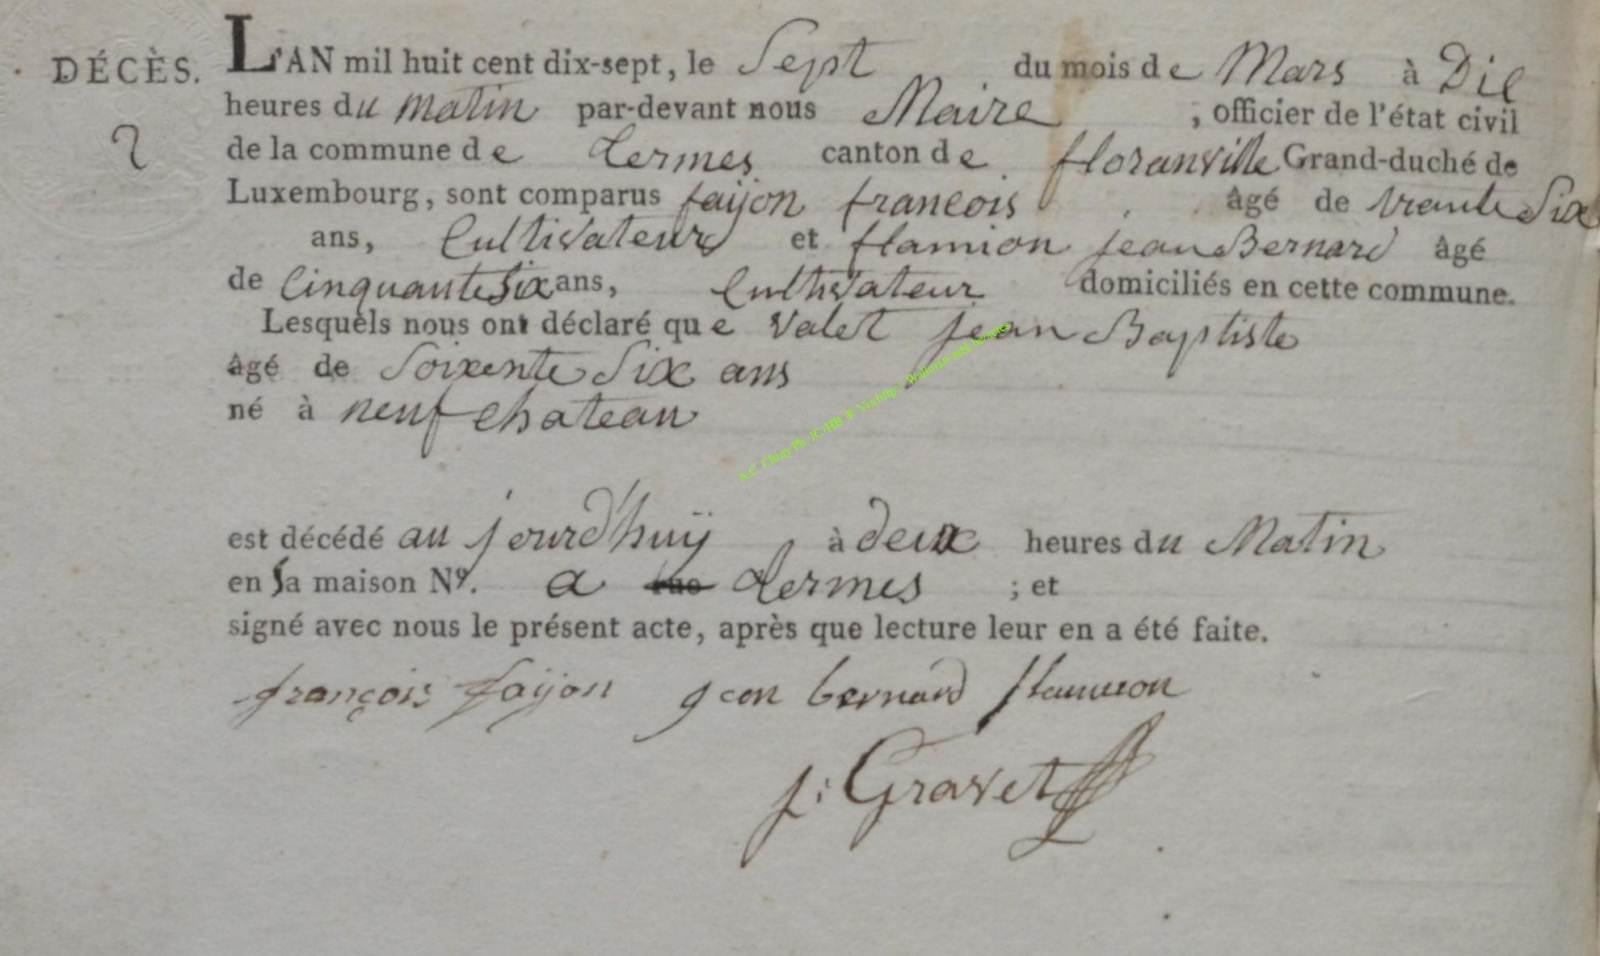 DÉCÈS.
2
L'AN mil huit cent dix-sept, le Sept du mois de Mars à Dix
heures du matin par-devant nous Maire , officier de l'état civil
de la commune de Termes canton de floranville Grand-duché de
Luxembourg, sont comparus faijon francois âgé de trante Six
ans, Cultivateur et flamion jean Bernard âgé
de Cinquante Six ans, Cultivateur domiciliés en cette commune.
Lesquels nous ont déclaré que Valet jean Baptiste
âgé de Soixente Six ans
né à neufchateau
est décédé au jourd'huÿ à deux heures du Matin
en Sa maison Nº. a rue Termes ; et
signé avec nous le présent acte, après que lecture leur en a été faite.
françois faijon jean bernard flamion
j: Gravet